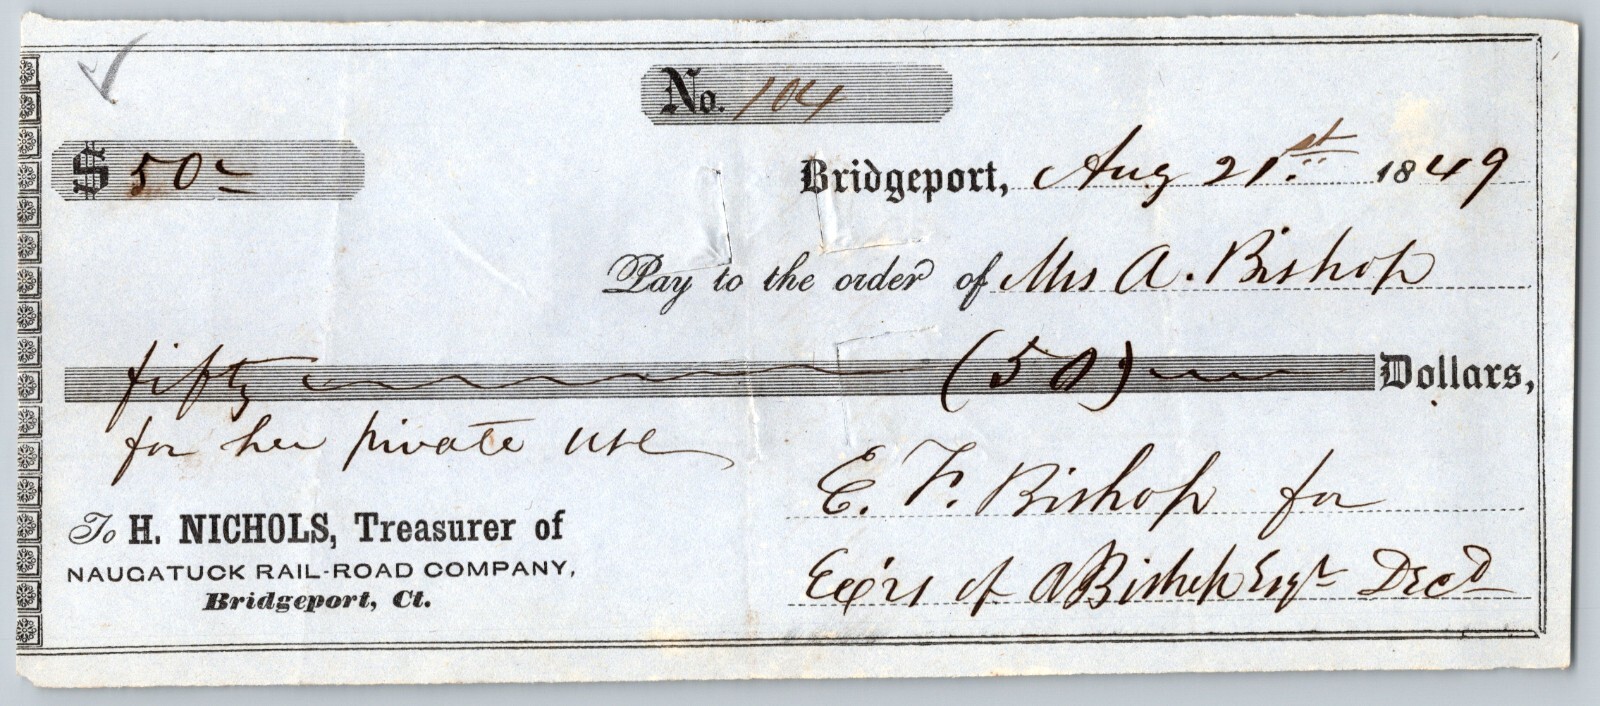 No. 104
$ 50
Bridgeport, Aug 21st 1849
Pay to the order of Mrs A. Bishop
fifty (50) Dollars,
for her private use
To H. NICHOLS, Treasurer of
NAUGATUCK RAIL-ROAD COMPANY,
Bridgeport, Ct.
E. F. Bishop for
Exrs of A Bishop Esqr Decd